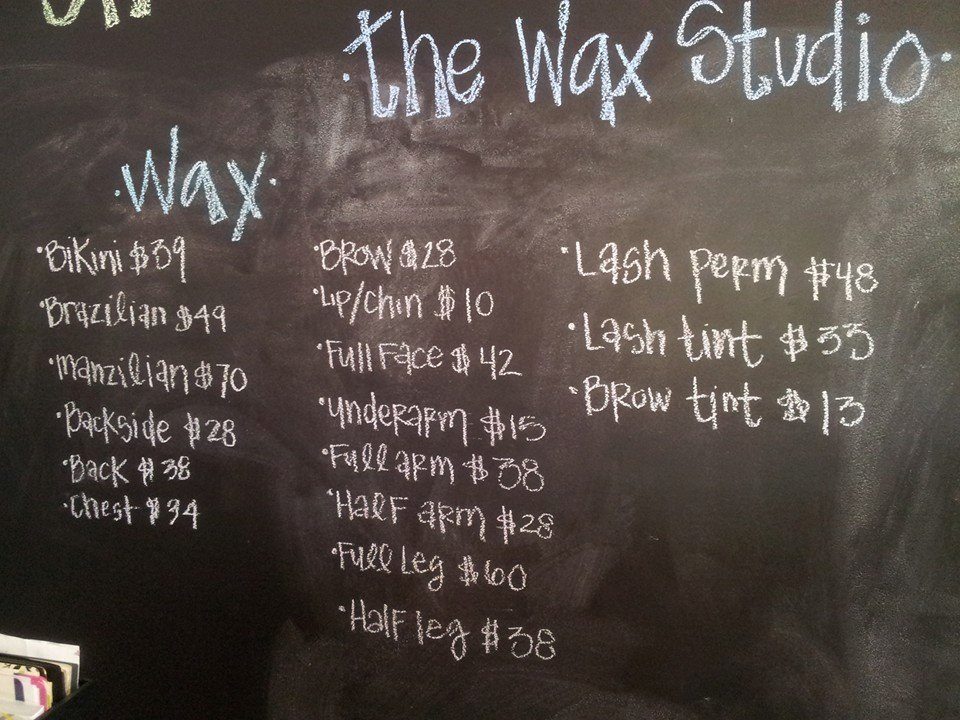 ·The Wax Studio·
·Wax·
·Bikini $39
Brazilian $49
·Manzilian $70
·Backside $28
·Back $38
·Chest $34
·Brow $28
·Lip/Chin $10
·Full Face $42
·Underarm $15
·Full arm $38
·Half arm $28
·Full Leg $60
·Half leg $38
·Lash perm $48
·Lash tint $33
·Brow tint $13